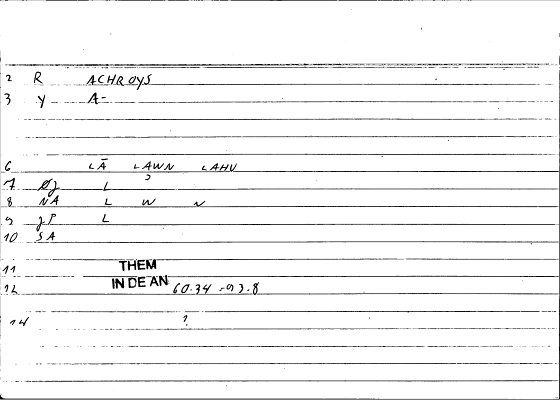 2 R ACHROYS
3 Y A-
6 LĀ LAWN LAHU
7 L
8 NA L W N
9 JP L
10 SA
11 THEM
12 IN DE AN 60.34
14 ?